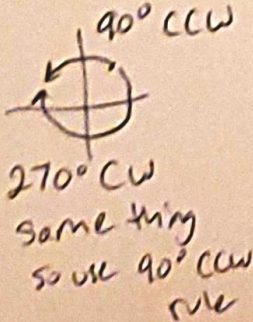 90° CCW
270° CW
same thing
so use 90° CCW
rule